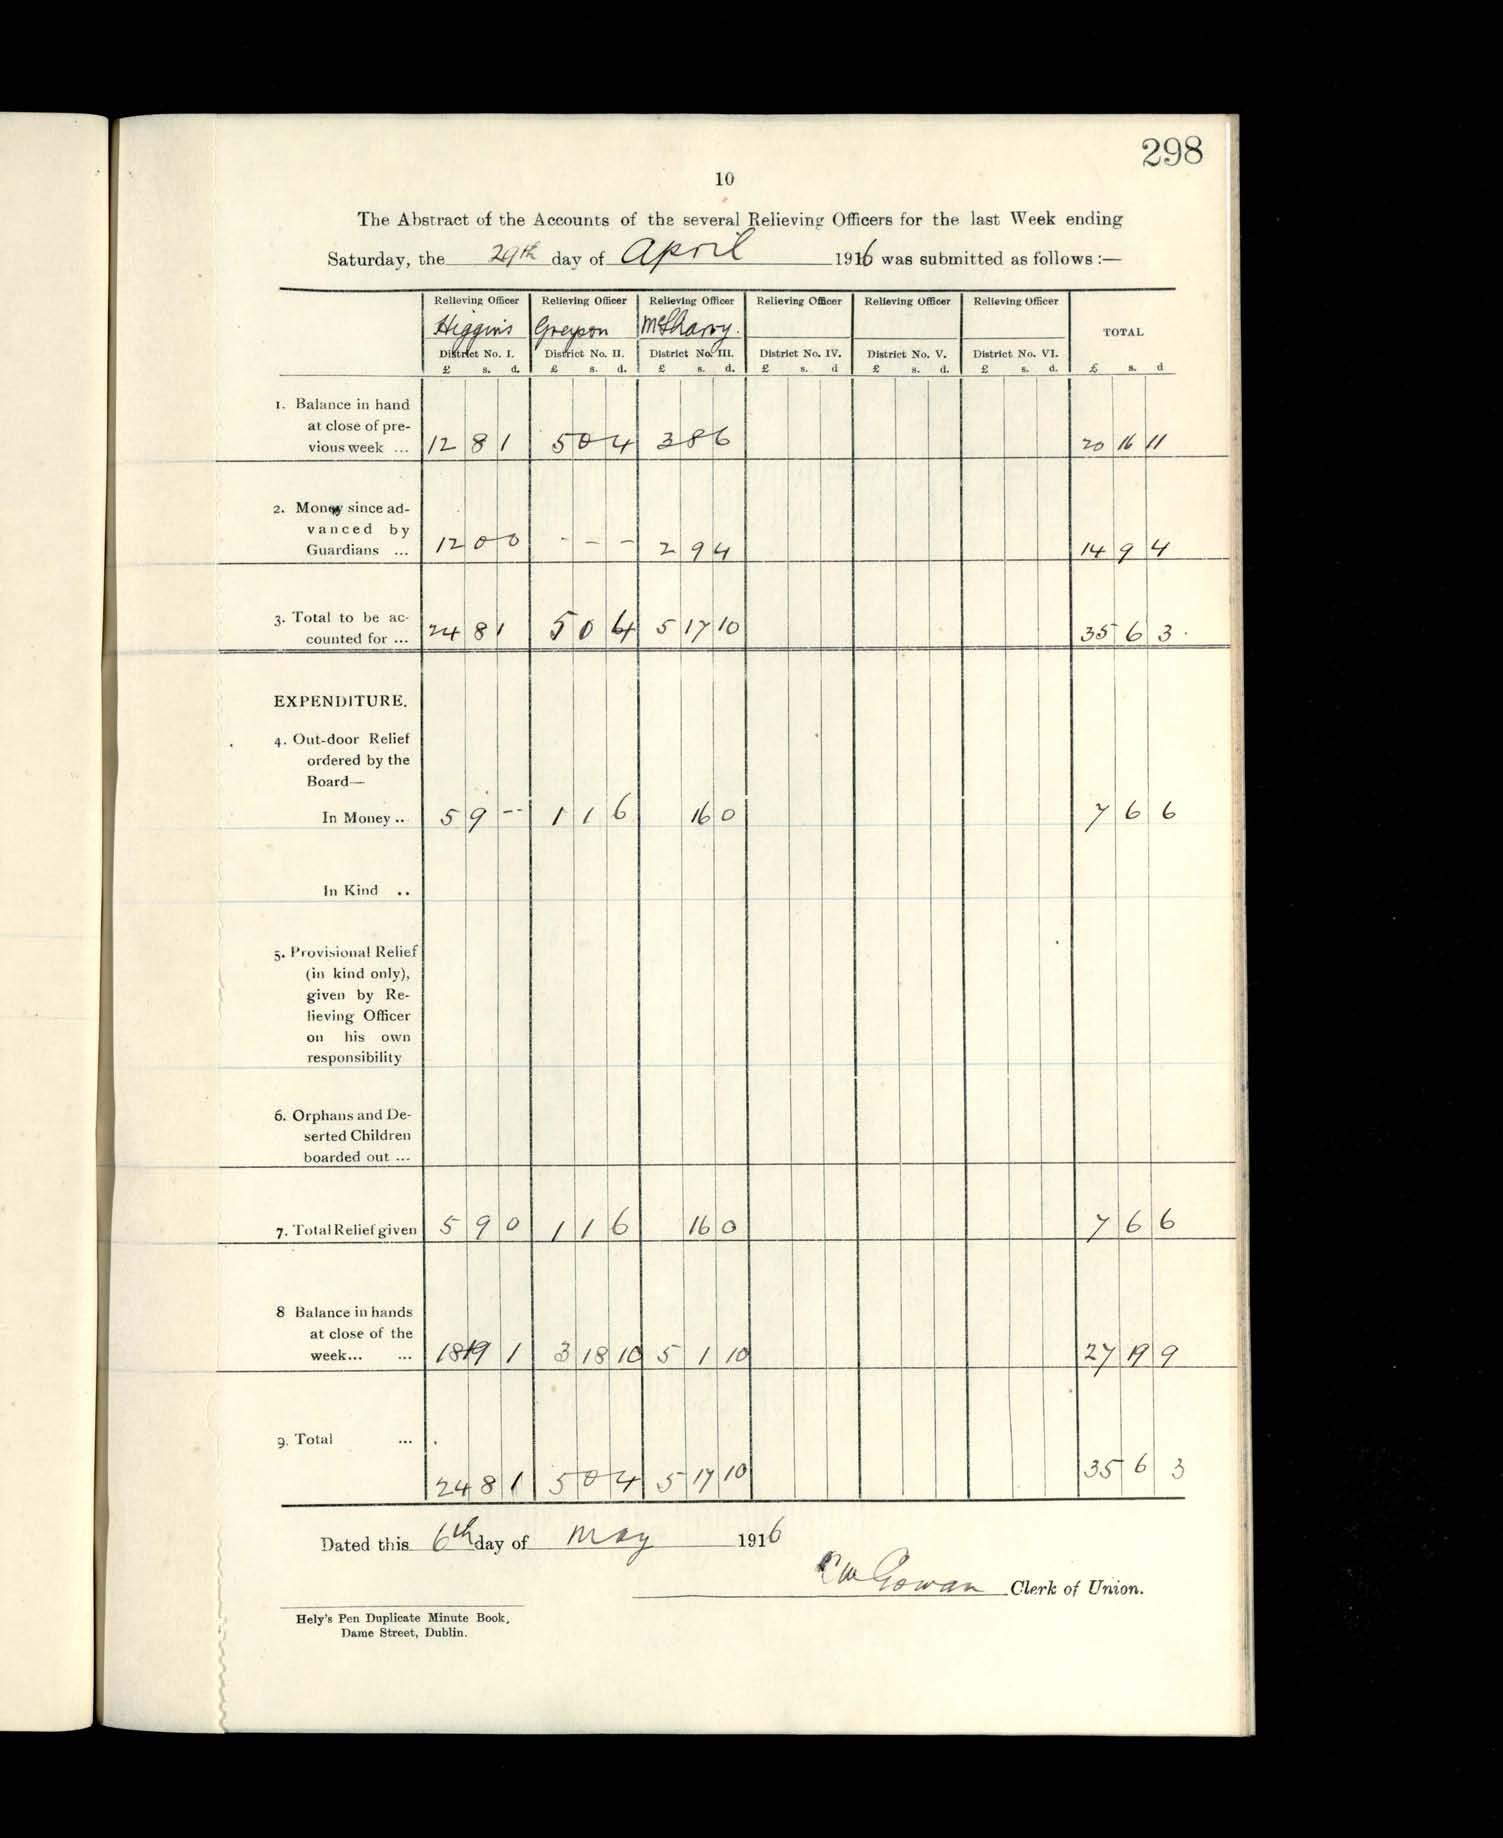 298
10
The Abstract of the Accounts of the several Relieving Officers for the last Week ending
Saturday, the 29th day of April 1916 was submitted as follows :—
Relieving Officer Relieving Officer Relieving Officer Relieving Officer Relieving Officer Relieving Officer
Higgins Greyson McSharry. TOTAL
District No. I. District No. II. District No. III. District No. IV. District No. V. District No. VI.
£ s. d. £ s. d. £ s. d. £ s. d £ s. d. £ s. d. £ s. d
1. Balance in hand
at close of pre-
vious week ... 12 8 1 5 0 4 3 8 6 20 16 11
2. Money since ad-
vanced by
Guardians ... 12 0 0 - - - 2 9 4 14 9 4
3. Total to be ac-
counted for ... 24 8 1 5 0 4 5 17 10 35 6 3
EXPENDITURE.
4. Out-door Relief
ordered by the
Board—
In Money .. 5 9 -- 1 1 6 16 0 7 6 6
In Kind ..
5. Provisional Relief
(in kind only),
given by Re-
lieving Officer
on his own
responsibility
6. Orphans and De-
serted Children
boarded out ...
7. Total Relief given 5 9 0 1 1 6 16 0 7 6 6
8 Balance in hands
at close of the
week... ... 18 19 1 3 18 10 5 1 10 27 19 9
9. Total ...
24 8 1 5 0 4 5 17 10 35 6 3
Dated this 6th day of May 1916
Gowan Clerk of Union.
Hely's Pen Duplicate Minute Book,
Dame Street, Dublin.